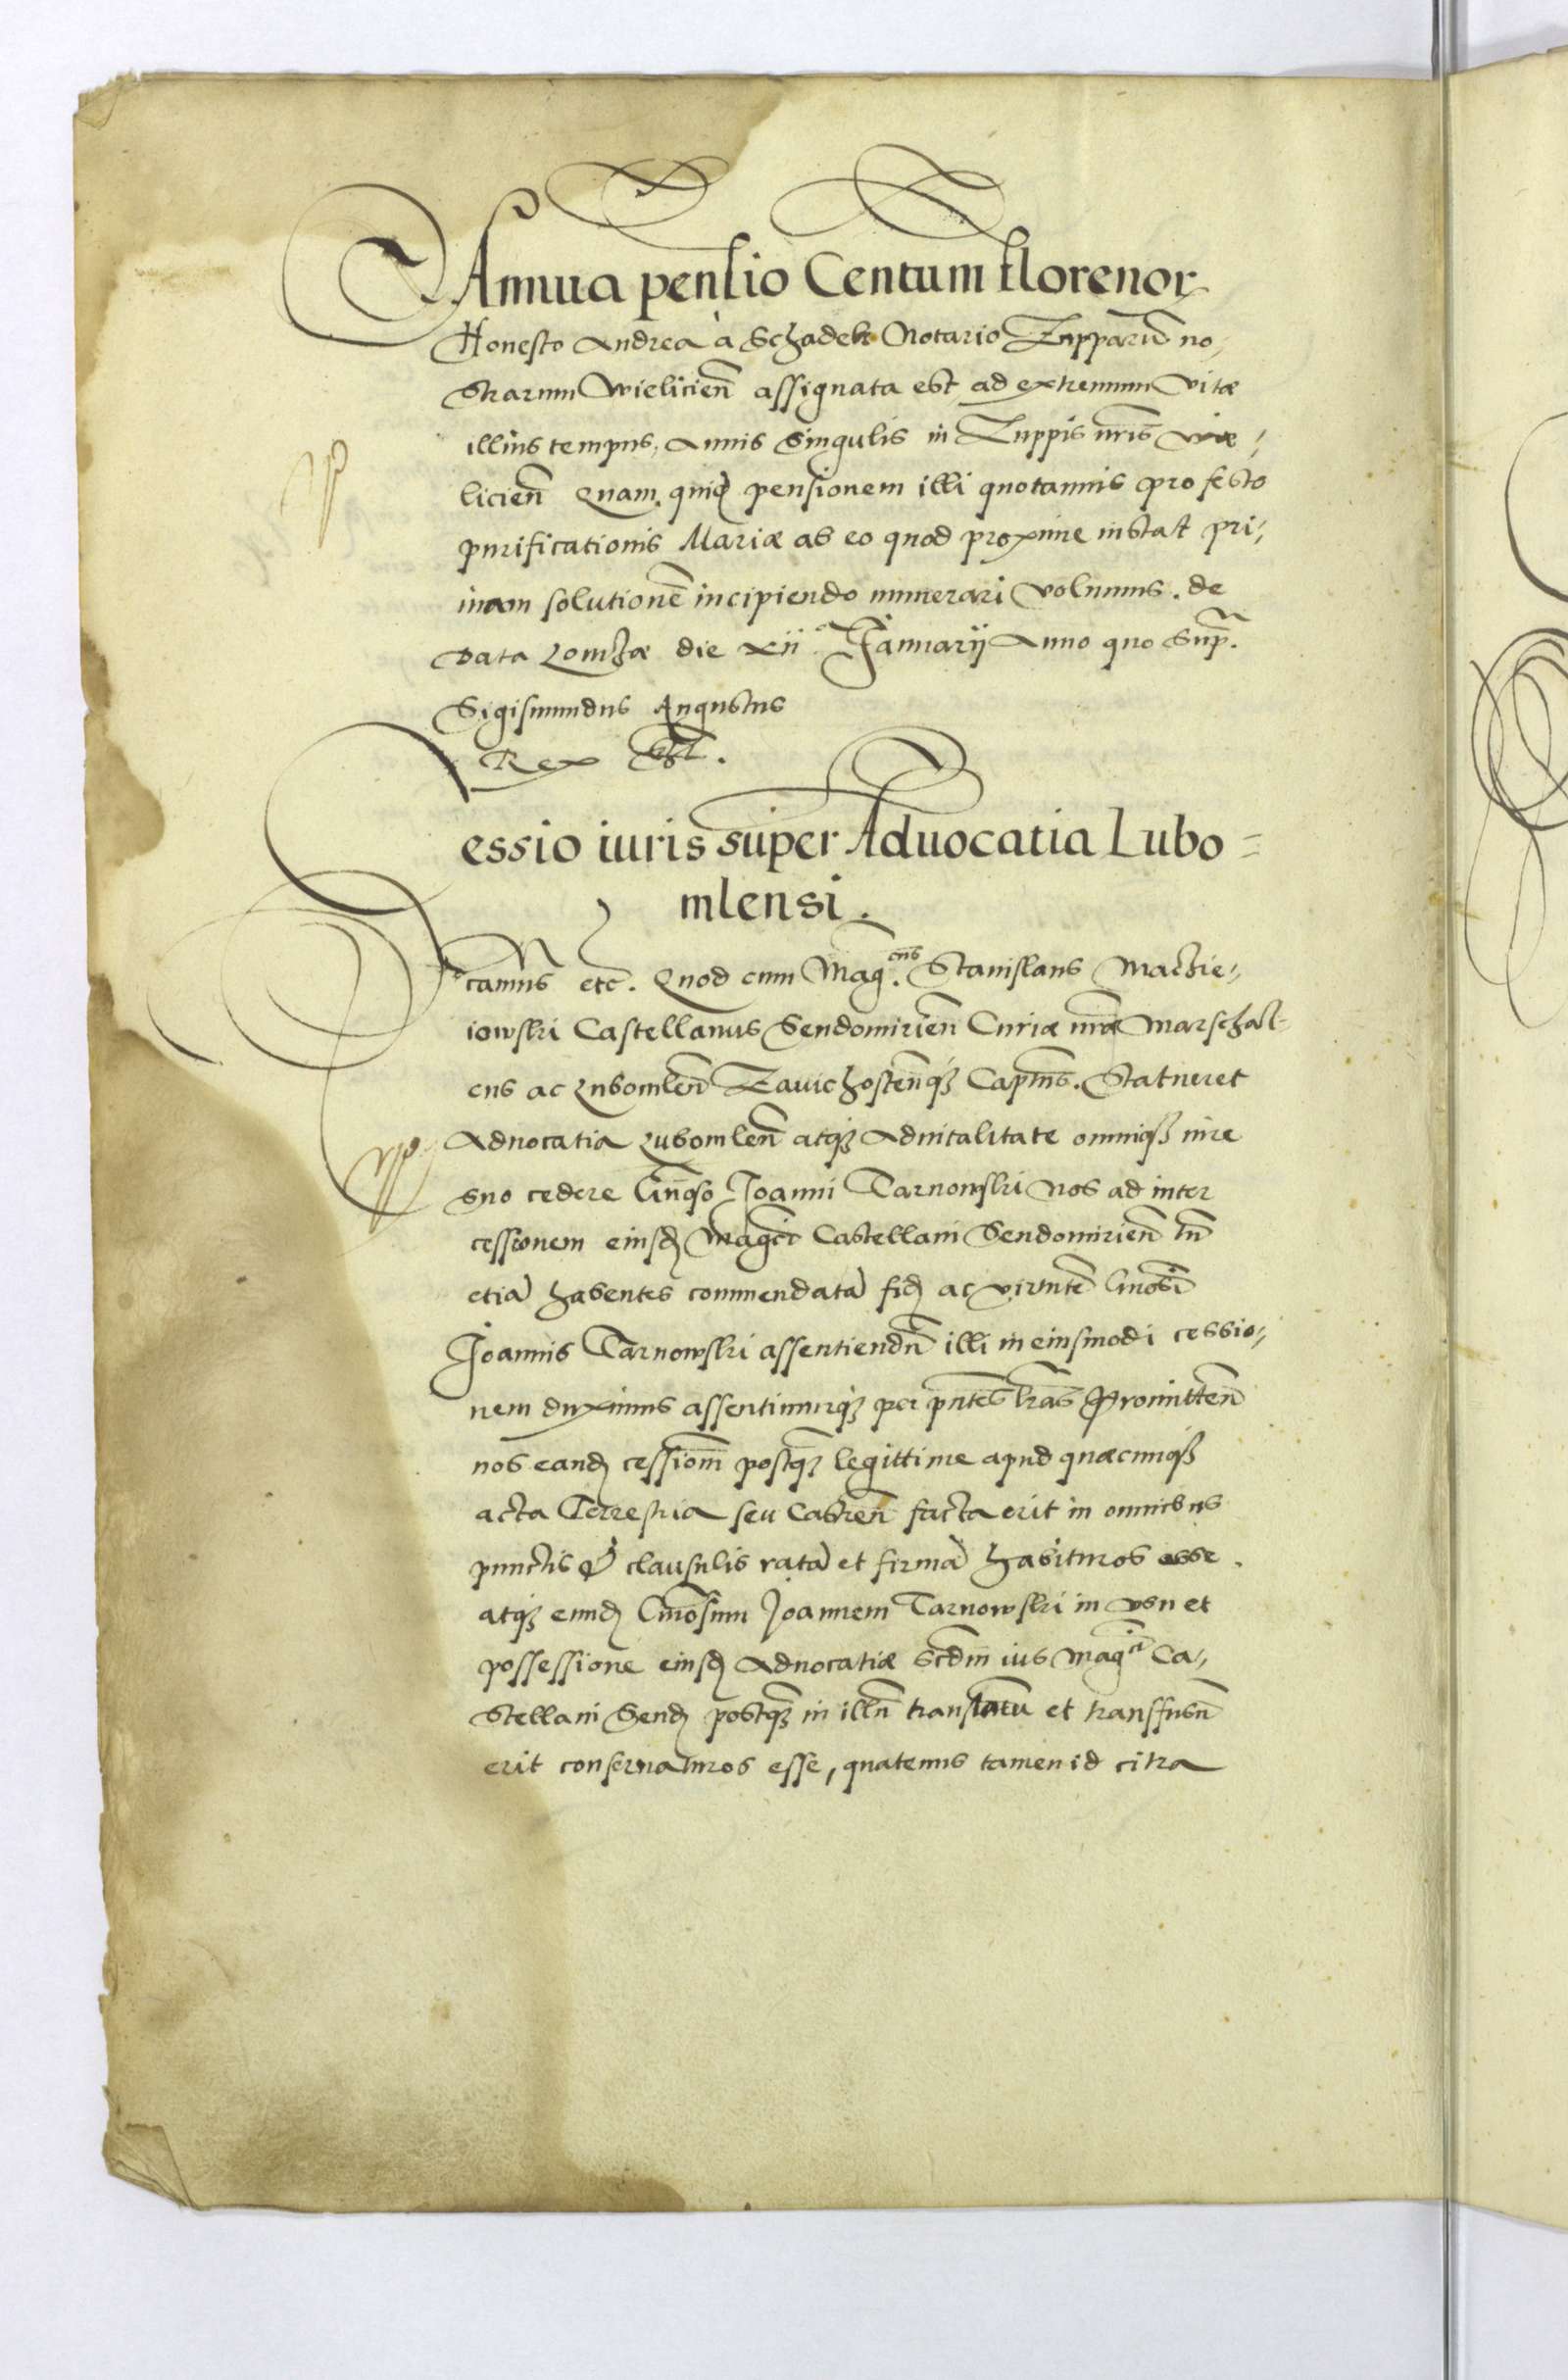 Annua pensio Centum florenor
Honesto Andreæ à Schadek Notario Zupparū no,
strarum Wielicien̄ assignata est ad extremum vitæ
illius tempus, Annis singulis in Zuppis nr̄is Wie,
licien̄ Quam quid pensionem illi quotannis pro festo
purificationis Mariæ ab eo quod proxime instat pri,
mam solutionē incipiendo numerari volumus. de
Data Lomzæ die xii Januarij Anno quo sup̄.
Sigismundus Augustus
Rex
Cessio iuris super Aduocatia Lubo=
mlensi.
camus etc. Quod cum Mag.cus Stanislaus Maczie,
iowski Castellanus Sendomirien̄ Curiæ nr̄æ Marschal=
cus ac Lubomlen̄ Zauichosten̄q3 Captn̄s. Statueret
Aduocatia Lubomlen̄ atq3 Aduitalitate omniq3 iure
suo cedere Gn̄oso Joanni Tarnowski nos ad inter
cessionem eiusd Magcī Castellani Sendomirien̄ tn̄
etiā habentes commendatā fid ac virtutē Gnōsi
Joannis Tarnowski assentiendū illi in eiusmodi cessio,
nem duximus assentimurq3 per pn̄tes lr̄as Promitten̄
nos eand cessiom̄ postq3 legittime apud quæcunq3
acta Terrestria seu Castren̄ facta erit in omnibus
punctis & clausulis ratā et firmā habituros esse.
atq3 eund Gn̄osum Joannem Tarnowski in vsu et
possessione eiusd Aduocatiæ scdm̄ ius Mag.ci Ca,
stellani Send postq3 in illū translatū et transfusū
erit conseruaturos esse, quatenus tamen id citra